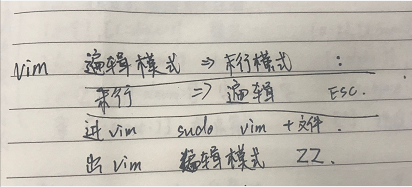 vim 编辑模式 ⇒ 末行模式 :
末行 ⇒ 编辑 ESC.
进vim sudo vim + 文件.
出vim 编辑模式 ZZ.